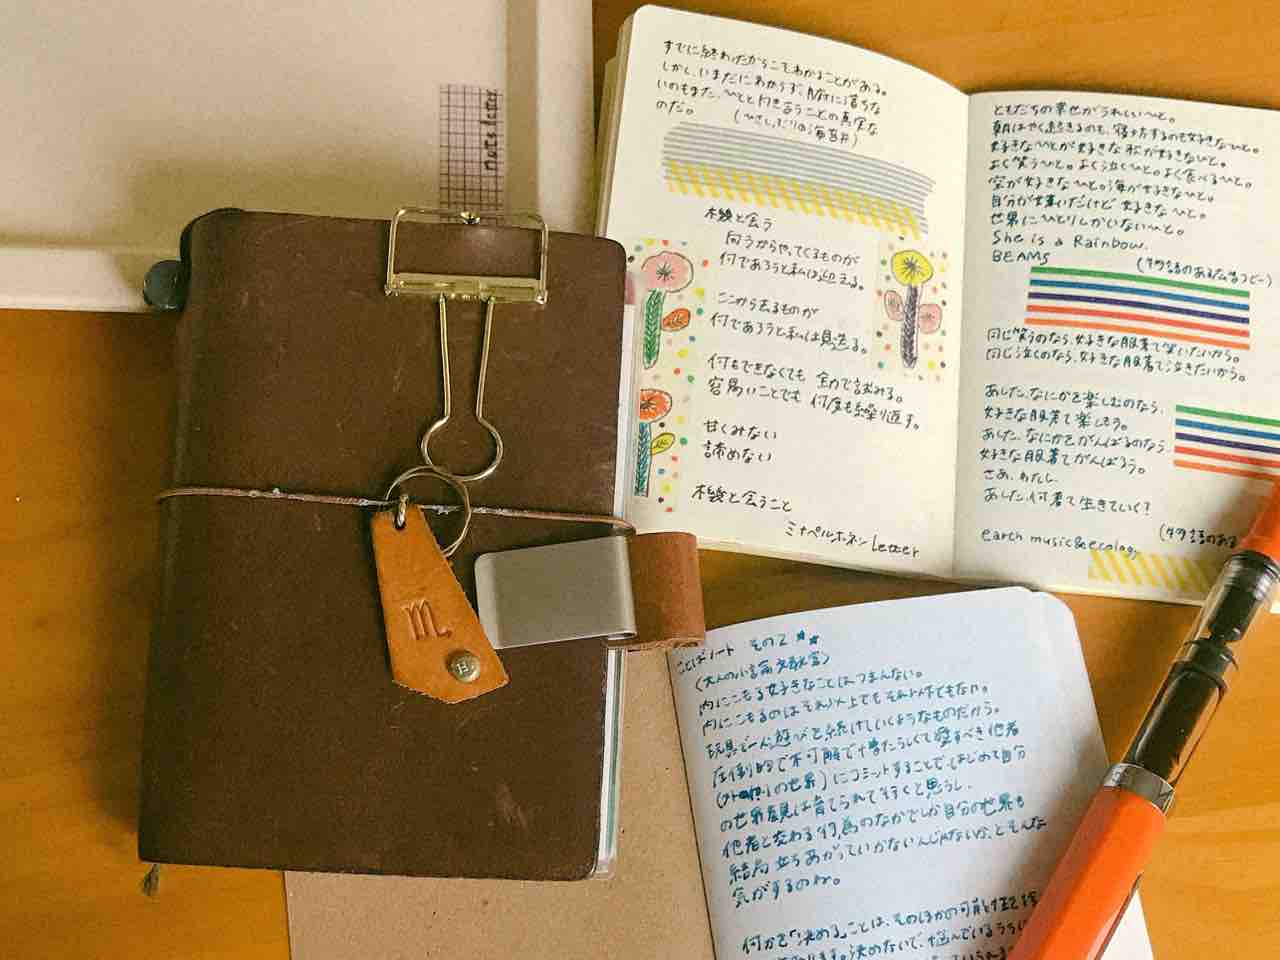 note letter
♏
すでに終わったからこそわかることがある。
しかし、いまだにわからず、腑に落ちな
いのもまた、ひとと向き合うことの真実な
のだ。 (ひさしぶりの海苔弁)
機と会う
向うからやってくるものが
何であろうと私は迎える。
ここから去るものが
何であろうと私は見送る。
何もできなくても 全力で試みる。
容易いことでも 何度も繰り返す。
甘くみない
諦めない
機と会うこと
ミナペルホネン Letter
ともだちの幸せがうれしいひと。
朝はやく起きるのも、寝坊するのも好きなひと。
好きなひとが好きな私が好きなひと。
よく笑うひと。よく泣くひと。よく食べるひと。
空が好きなひと。海が好きなひと。
自分が嫌いだけど 好きなひと。
世界にひとりしかいないひと。
She is a Rainbow.
BEAMS (物語のあるムービー)
同じ笑うのなら、好きな服着て笑いたいから。
同じ泣くのなら、好きな服着て泣きたいから。
あした、なにかを楽しむのなら、
好きな服着て楽しもう。
あした、なにかをがんばるのなら、
好きな服着てがんばろう。
さあ、わたし。
あした、何着て生きていく?
earth music&ecology (物語のある
ことばノート その2 ★★
(大人の小論文教室)
内にこもる好きなことはつまんない。
内にこもるのはそれ以上でもそれ以下でもない。
玩具で一人遊びを続けていくようなものだから。
圧倒的で不可解で憎たらしくて愛すべき他者
の世界)にコミットすることで、はじめて自分
の世界観は育てられて行くと思うし、
他者と交わる行為のなかでしか自分の世界も
結局立ちあがっていかないんじゃないか、とそんな
気がするのね。
何かを「決める」ことは、そのほかの可能性を捨
ます。決めないで、悩んでいるうちに